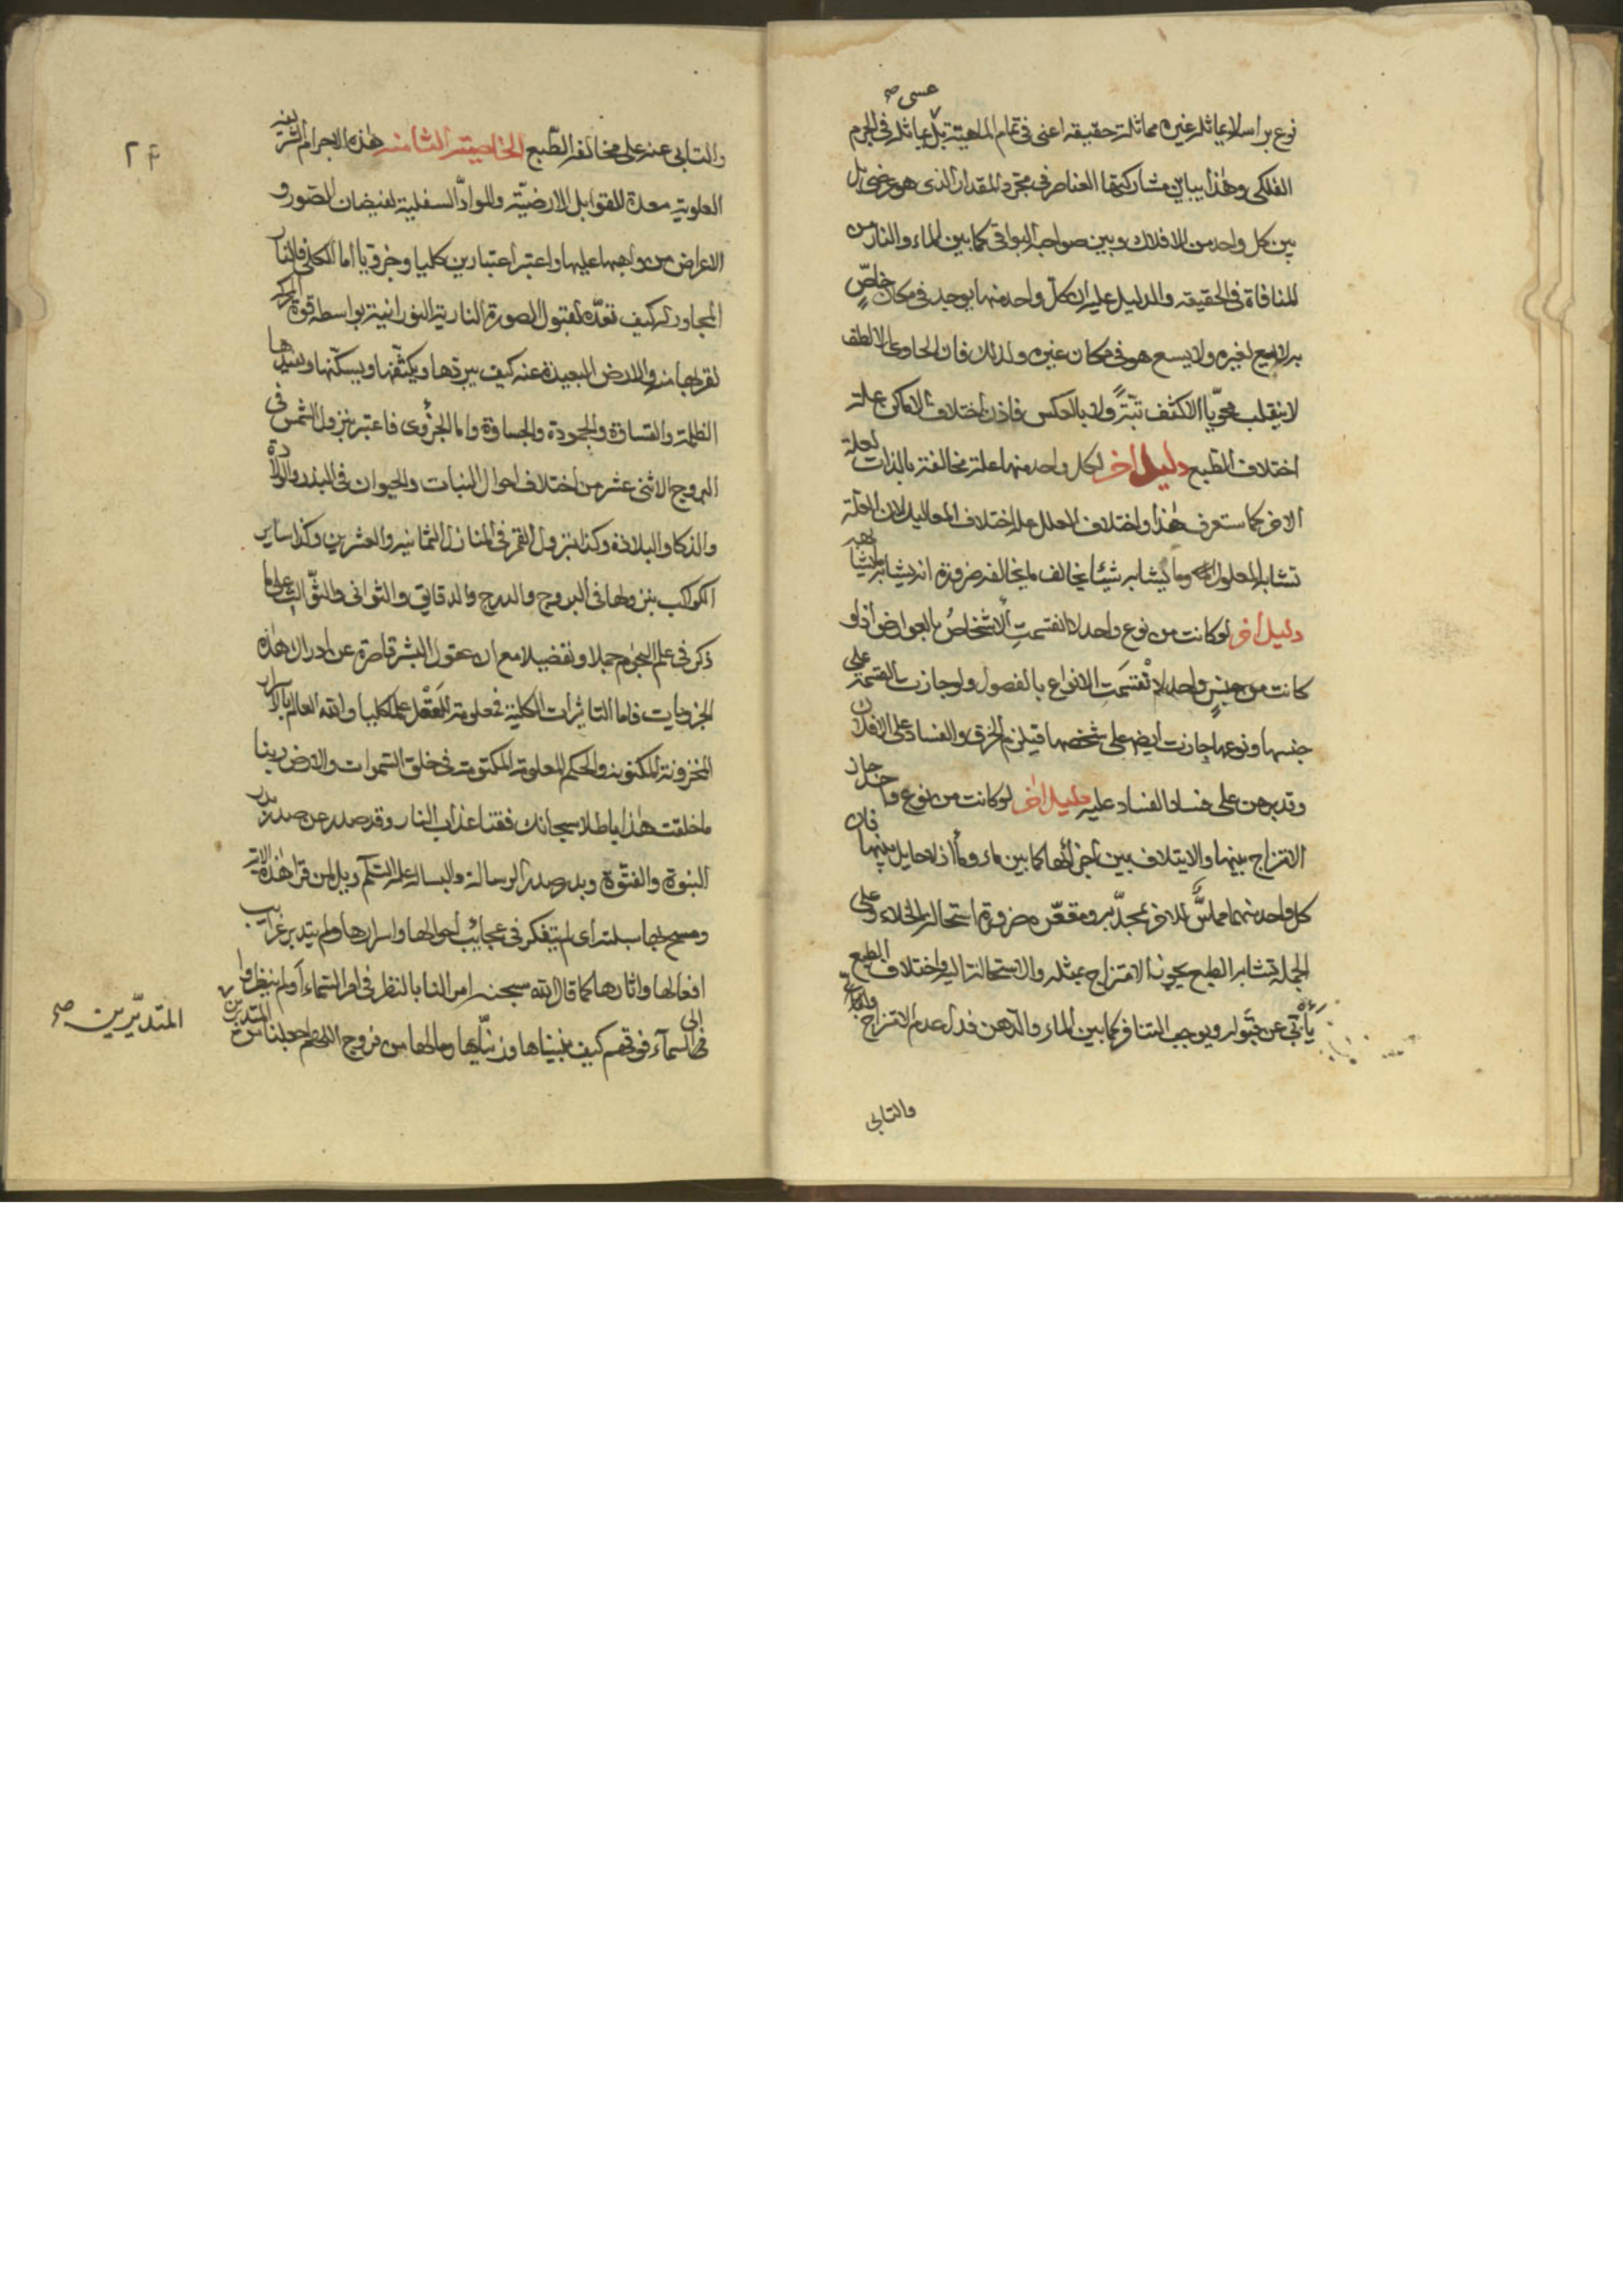 عسى صح
نوع براسه لا يماثله غيره مماثلة حقيقية اعنى فى تمام الماهية بل يماثله فى الجرم
الفلكى وهذا يباين مشاركتها العناصر فى مجرد المقدار الذى هو عرضى بل
بين كل واحد من الافلاك وبين صواحبه البواقى كما بين الماء والنار من
المنافاة فى الحقيقة والدليل عليه ان كل واحد منها يوجد فى مكان خاصٍّ
به لا يسع لغيره ولا يسع هو فى مكان غيره ولذلك فان الحاوى الالطف
لا ينقلب محويا الاكثف تبتةً ولا بالعكس فاذن اختلاف الاماكن علة
اختلاف الطبع دليل اخر لكل واحد منها علة مخالفة بالذات لعلة
الاخر كما ستعرف هذا واختلاف العلل علة اختلاف المعاليل لان العلة
تشابه المعلول وما يشابه شيئا يخالف ما يخالفه ضرورة انه يشابه ما يشابهه
دليل اخر لو كانت من نوع واحد لانقسمت الاشخاصُ بالعوارض اذ لو
كانت من جنسٍ واحد لانْقسَمَتِ الانواع بالفصول ولو جازت القسمة على
جنسها ونوعها جازت ايضا على شخصها فيلزم الخرق والفساد على الافلاك
وقد برهن على فساد الفساد عليه دليل اخر لو كانت من نوع واحد جاز
الامتزاج بينها والايتلاف بين اجزائها كما بين ماء وماء اذ لا حايل بينها فان
كل واحد منهما مماسٌّ للاخر بمحدّبه ومقعّره ضرورة استحالة الخلاء وعلى
الجملة تشابه الطبع يجوز الامتزاج بمثله والاستحالة اليه واختلاف الطبع
يأبى عن قبوله ويوجب التنافر كما بين الماء والدهن فدل عدم الامتزاج
والتابى
٢٤
والتابى عنه على مخالفة الطبع الخاصية الثامنة هذه الاجرام الشريفة
العلوية معدة للقوابل الارضية والمواد السفلية لفيضان الصور و
الاعراض من واهبها عليها واعتبر اعتبارين كليا وجزويا اما الكلى فالنار
المجاورة له كيف تعدّه لقبول الصورة النارية النورانية بواسطة قوة الحركة
لقربها منه والارض البعيدة عنه كيف يبردها ويكثّفها ويسكّنها ويفيدها
الظلمة والقساوة والجمودة والجساوة واما الجزؤى فاعتبر بنزول الشمس فى
البروج الاثنى عشر من اختلاف احوال النبات والحيوان فى البذر والولادة
والذكا والبلادة وكذا بنزول القمر فى المنازل الثمانية والعشرين وكذا ساير
الكواكب بنزولها فى البروج والدرج والدقايق والثوانى والثوالث على ما
ذكر فى علم النجوم جملا وتفضيلا مع ان عقول البشر قاصرة عن ادراك هذه
الجزويات فاما التاثيرات الكلية فمعلومة للعَقْل علما كليا والله العالم بالاسرار
المخزونة المكنونة والحكيم المعلومة المكتومة فى خلق السموات والارض ربنا
ما خلقت هذا باطلا سبحانك فقنا عذاب النار وقد صدر عن صدر بدر
النبوة والفتوّة وبدر صدر الرسالة والبسالة عليه السلم ويل لمن قرا هذه الاية
ومسح بها سبلته اى لم يتفكر فى عجائب احوالها واسرارها ولم يتدبر غرايب
افعالها واثارها كما قال الله سبحنه امر الناس بالنظر فى امر السماء أولم ينظروا
الى السمآء فوقهم كيف بنيناها وزينّاها وما لها من فروج اللهم اجعلنا من المتدبرين
المتدبّرين صح